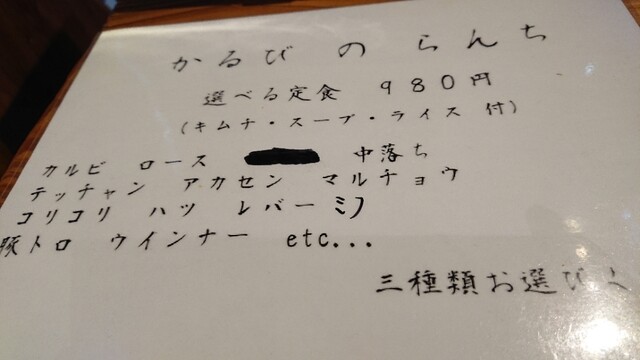 かるび の らんち
選べる定食 980円
(キムチ・スープ・ライス 付)
カルビ ロース 中落ち
テッチャン アカセン マルチョウ
コリコリ ハツ レバー ミノ
豚トロ ウインナー etc...
三種類お選び